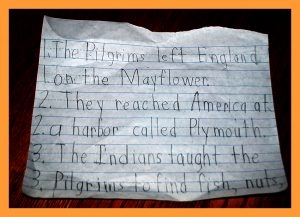 1. The Pilgrims left England
1. on the Mayflower.
2. They reached America at
2. a harbor called Plymouth.
3. The Indians taught the
3. Pilgrims to find fish, nuts,